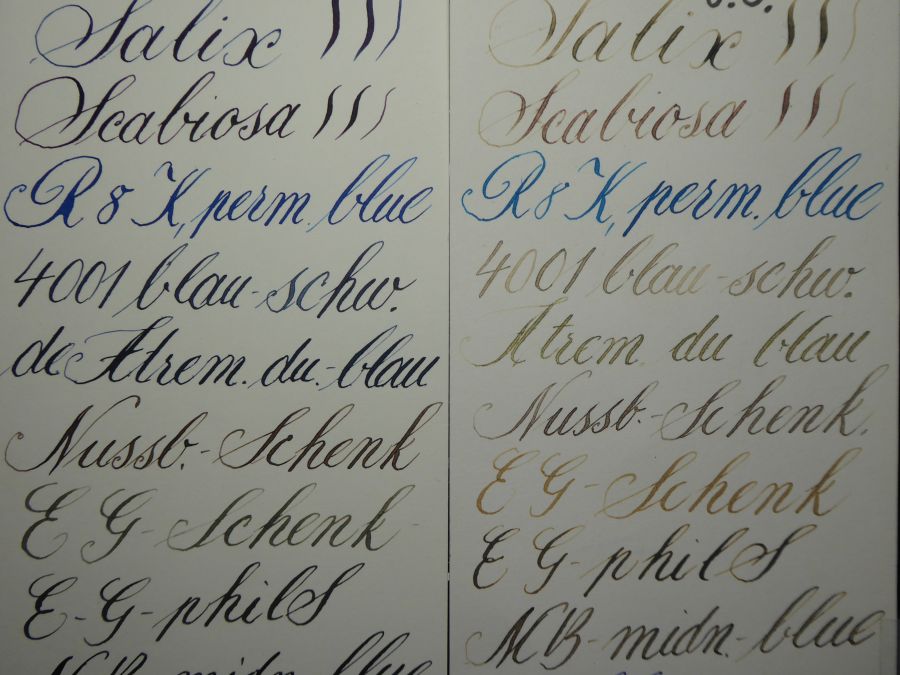 Salix
Scabiosa
R & K, perm. blue
4001 blau-schw.
de Atrem. du.-blau
Nussb.-Schenk
E G-Schenk
E-G-philS
MB-midn.-blue
J.S.
Salix
Scabiosa
R & K, perm. blue
4001 blau-schw.
Atrem. du blau
Nussb.-Schenk.
E G-Schenk
E G-philS
MB-midn.-blue